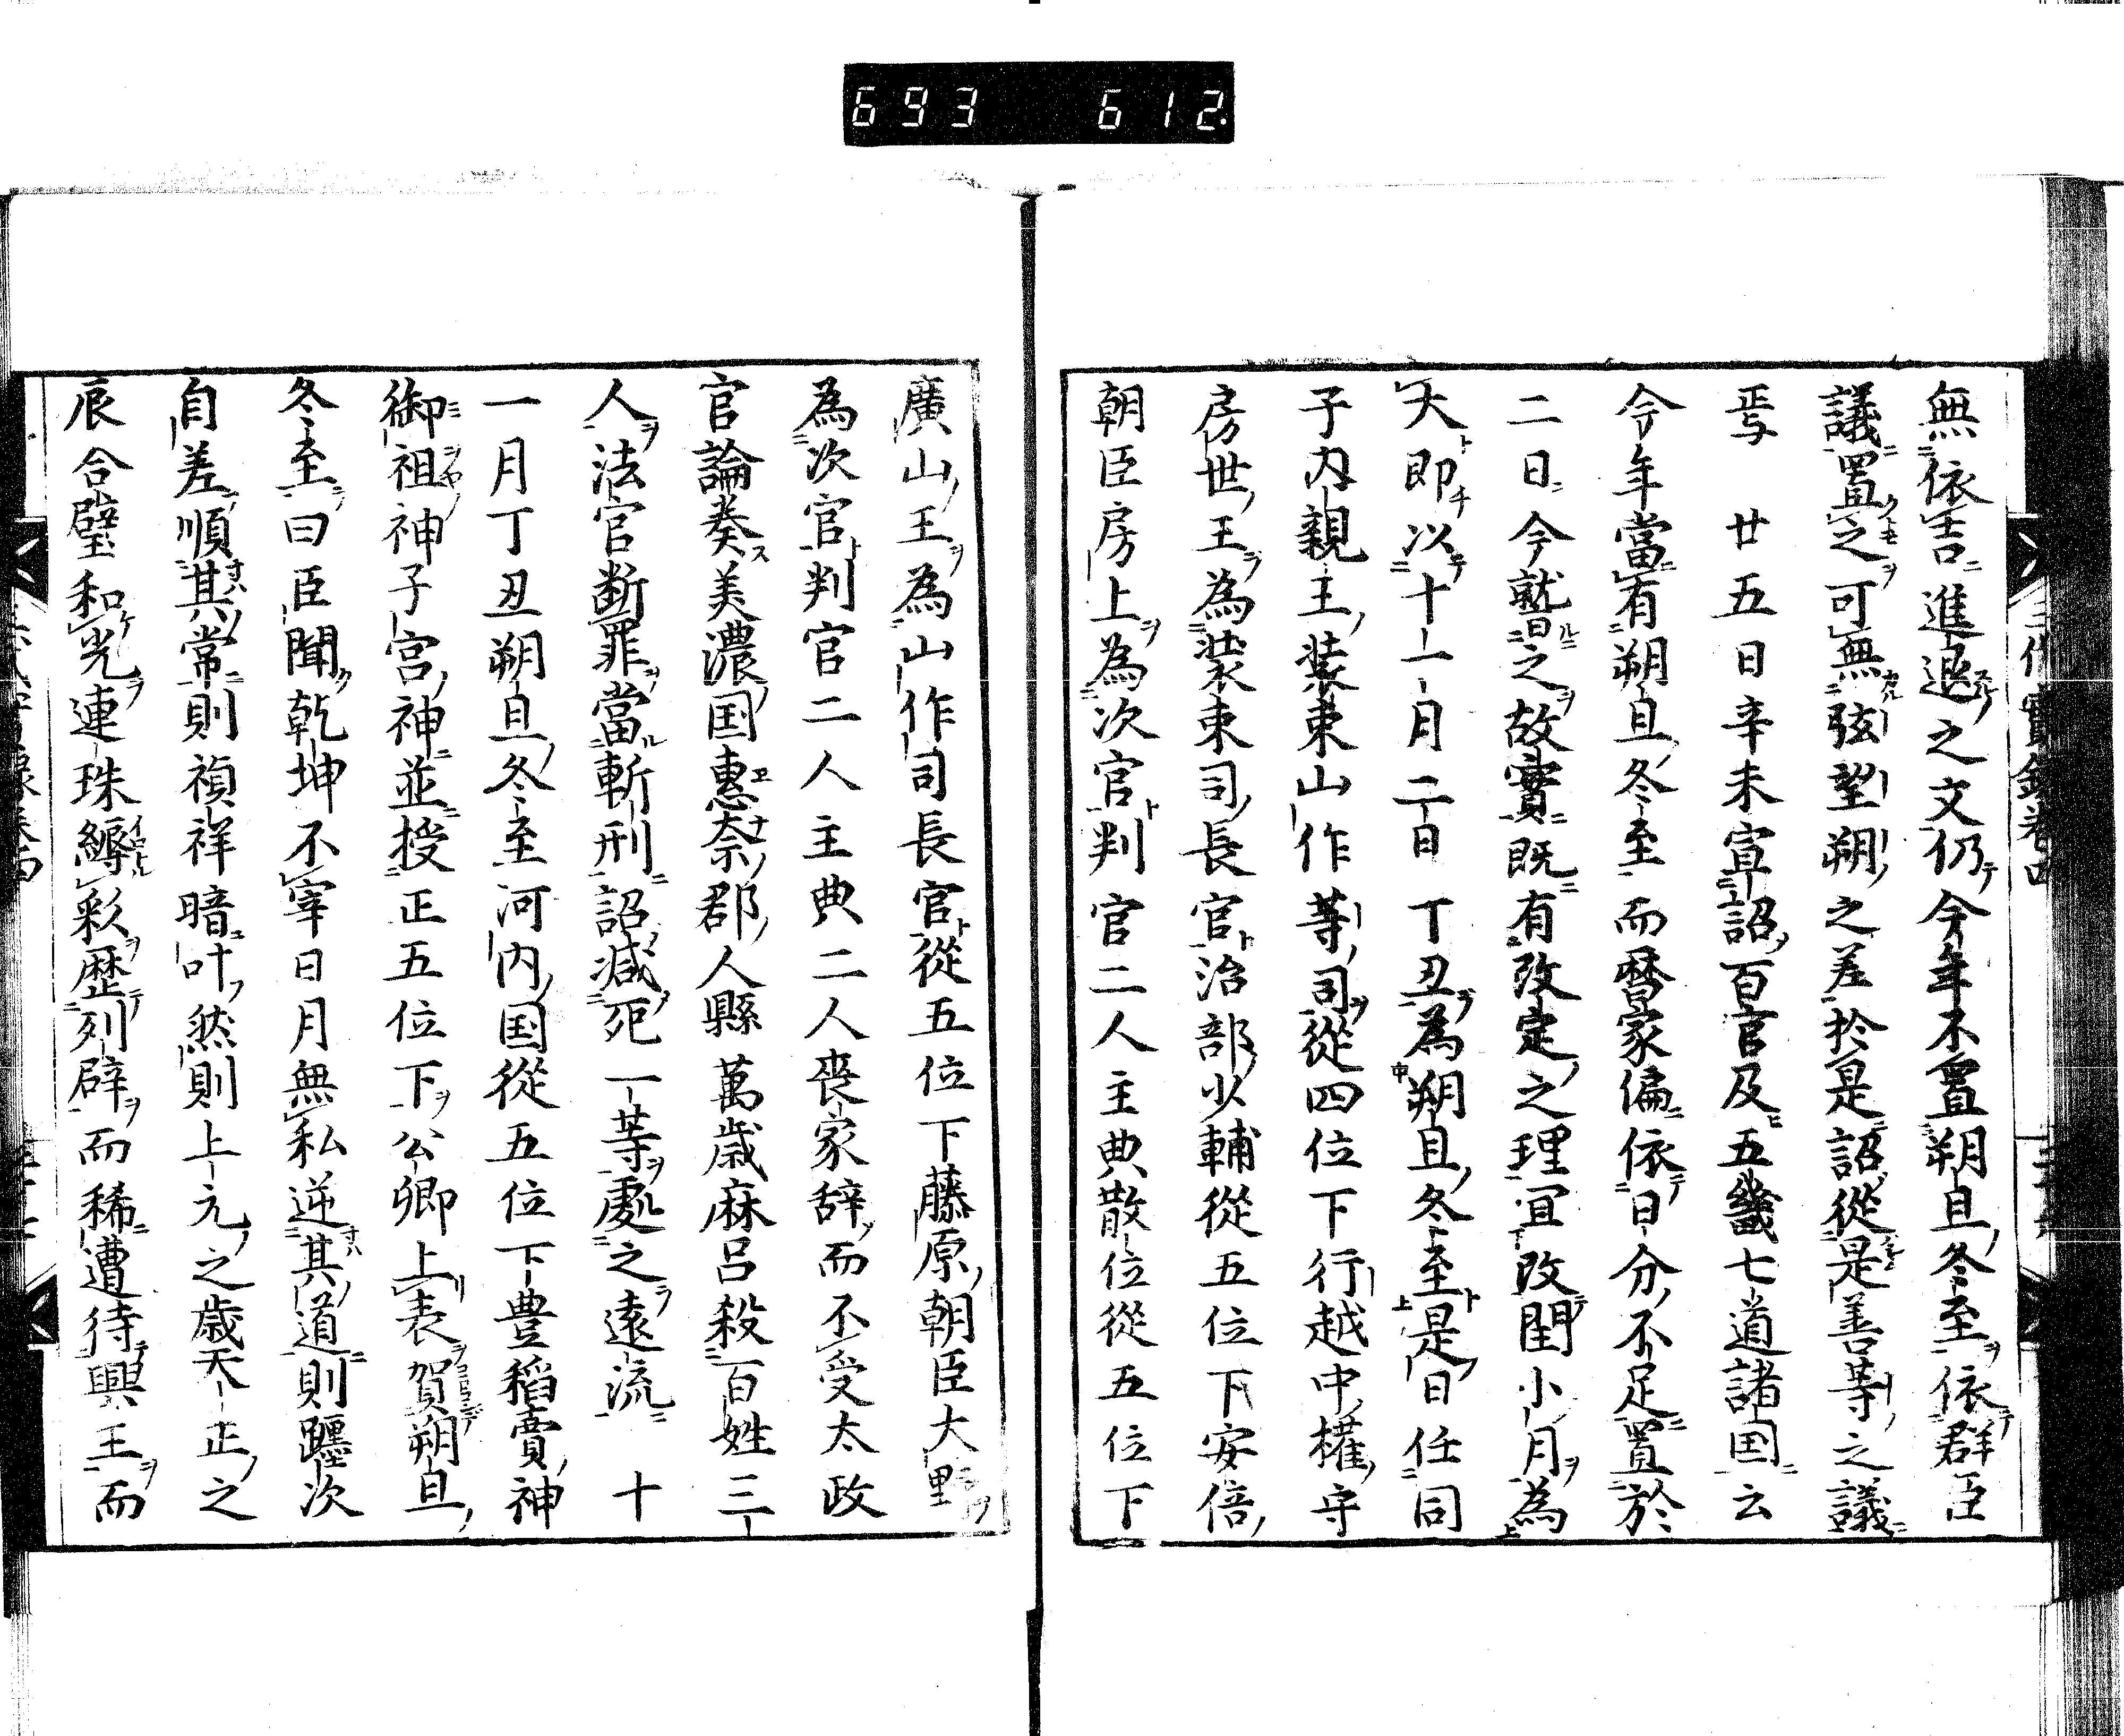 693 612
無依吉進退之文仍今年不置朔旦冬至依群臣
議置之可無弦望朔之差於是詔從是善等之議
焉 廿五日辛未宣詔百官及五畿七道諸国云
今年當有朔旦冬至而暦家偏依日分不足置於
二日今就日之故實既有改定之理宜改閏小月為
大即以十一月二日丁丑為朔旦冬至是日任同
子内親王装束山作等司從四位下行越中權守
房世王為装束司長官治部少輔從五位下安倍
朝臣房上為次官判官二人主典散位從五位下
廣山王為山作司長官從五位下藤原朝臣大里
為次官判官二人主典二人喪家辞而不受太政
官論奏美濃国惠奈郡人縣萬歳麻呂殺百姓三
人法官断罪當斬刑詔減死一等處之遠流 十
一月丁丑朔旦冬至河内国從五位下豊稻賣神
御祖神子宮神並授正五位下公卿上表賀朔旦
冬至曰臣聞乾坤不宰日月無私逆其道則躔次
自差順其常則禎祥暗叶然則上元之歳天正之
辰合璧和光連珠縟彩歴列辟而稀遭待興王而